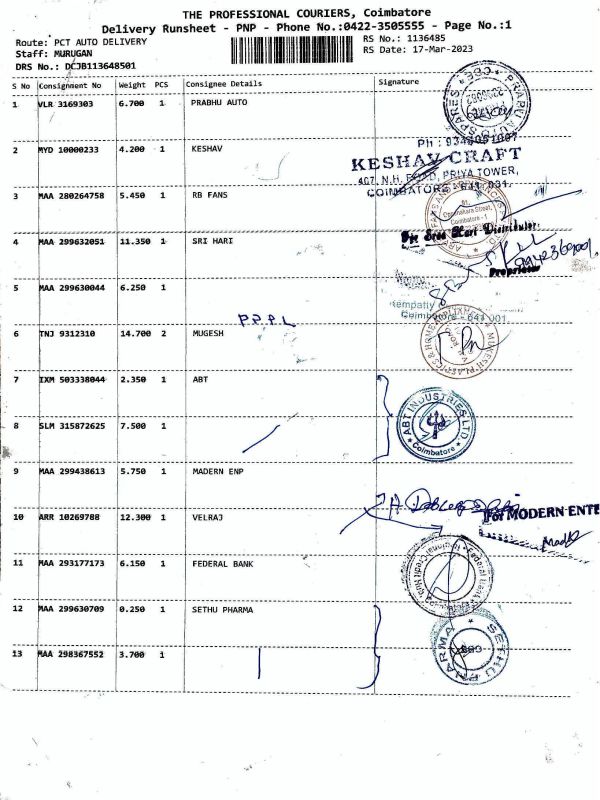 THE PROFESSIONAL COURIERS, Coimbatore
Delivery Runsheet - PNP - Phone No.:0422-3505555 - Page No.:1
Route: PCT AUTO DELIVERY
RS No.: 1136485
Staff: MURUGAN
RS Date: 17-Mar-2023
DRS No.: DCJB113648501
S No Consignment No Weight PCS Consignee Details Signature
1 VLR 3169303 6.700 1 PRABHU AUTO
2 MYD 10000233 4.200 1 KESHAV
Ph : 9344051007
KESHAV CRAFT
407, N.H. ROAD, PRIYA TOWER,
COIMBATORE - 641 001.
3 MAA 280264758 5.450 1 RB FANS
4 MAA 299632051 11.350 1 SRI HARI
For Sree Hari Distributor
Proprietor
5 MAA 299630044 6.250 1
Coimbatore - 641 001
P.P.P.L
6 TNJ 9312310 14.700 2 MUGESH
7 IXM 503338044 2.350 1 ABT
ABT INDUSTRIES LTD
Coimbatore
8 SLM 315872625 7.500 1
9 MAA 299438613 5.750 1 MADERN ENP
For MODERN ENTE
10 ARR 10269788 12.300 1 VELRAJ
11 MAA 293177173 6.150 1 FEDERAL BANK
12 MAA 299630709 0.250 1 SETHU PHARMA
SETHU PHARMA
CBE
13 MAA 298367552 3.700 1